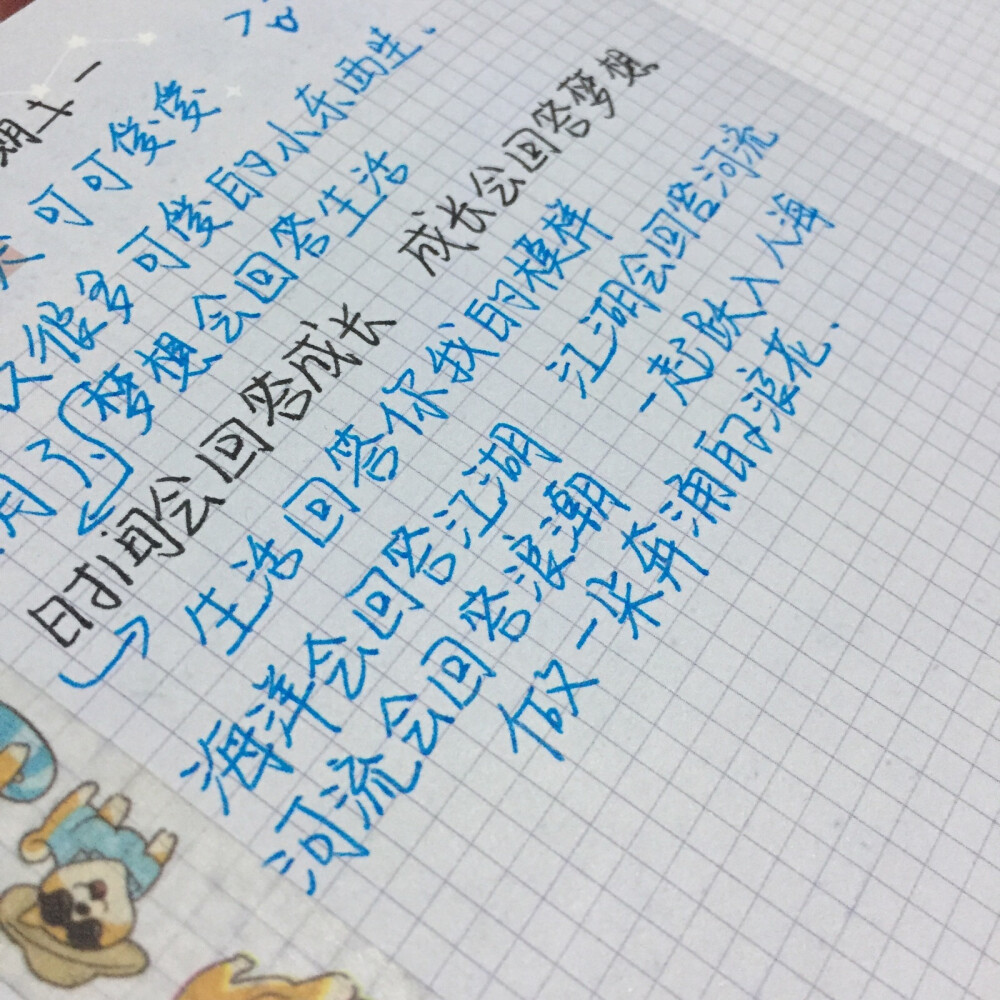 期末一
可可俊俊
又很多可俊的小东西生、
月了 梦想会回答生活
时间会回答成长 成长会回答梦想
生活回答你我的模样
海洋会回答江湖 江湖会回答河流
河流会回答浪潮 一起跃入人海
做一朵奔涌的浪花.